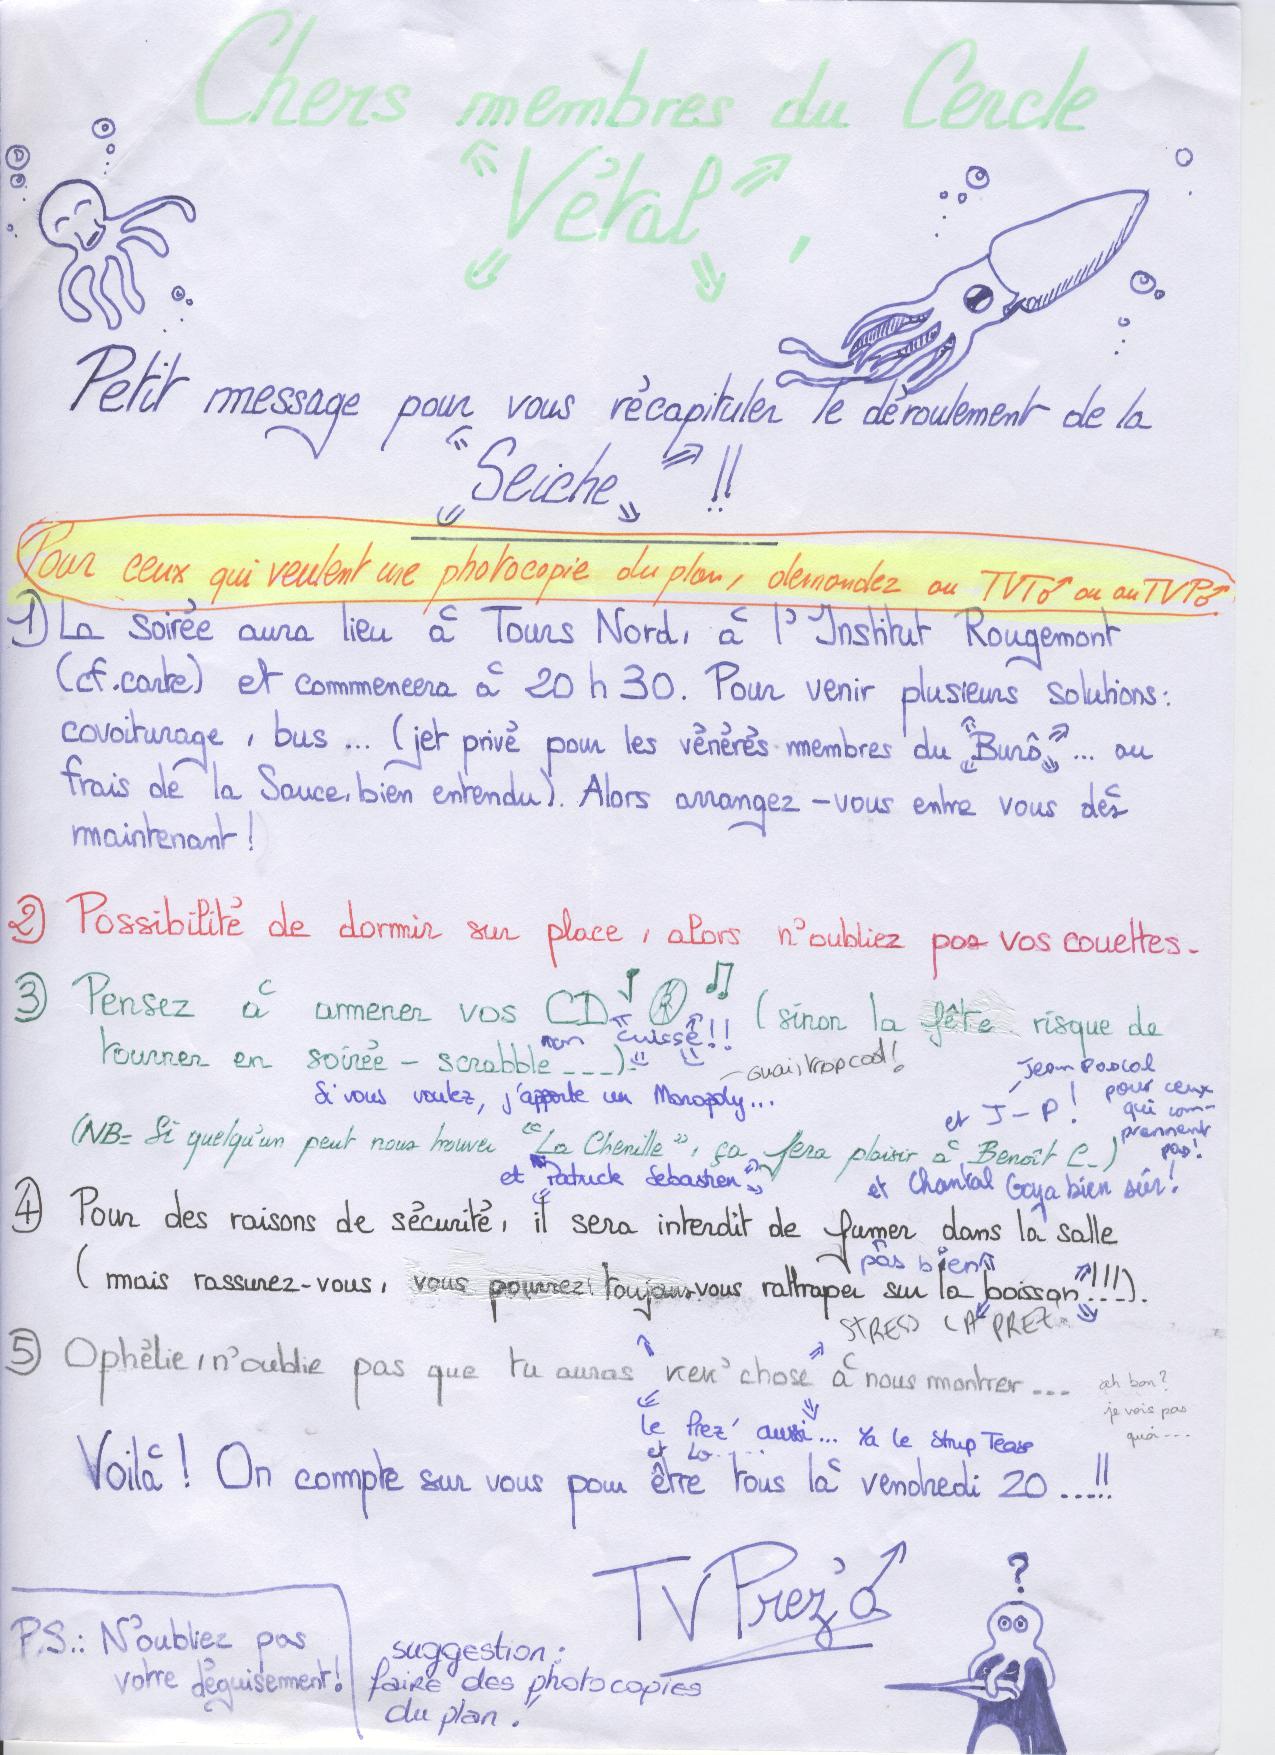 Chers membres du Cercle
"Vétal",
Petit message pour vous récapituler le déroulement de la
"Seiche" !!
Pour ceux qui veulent une photocopie du plan, demandez au TVTo♂ ou au TVPo♂
1) La soirée aura lieu à Tours Nord, à l'Institut Rougemont
(cf. carte) et commencera à 20 h 30. Pour venir plusieurs solutions:
covoiturage, bus ... (jet privé pour les vénérés membres du "Burô"... au
frais de la Sauce, bien entendu). Alors arrangez-vous entre vous dès
maintenant !
2) Possibilité de dormir sur place, alors n'oubliez pas vos couettes.
3) Pensez à amener vos CD (sinon la fête risque de
non "cuissé"!!
tourner en soirée-scrabble ...)
- ouai, trop cool!
Si vous voulez, j'apporte un Monopoly...
et J-P!
Jean Pascal
pour ceux
qui com-
prennent
pas!
(NB= Si quelqu'un peut nous trouver "La Chenille", ça fera plaisir à Benoît C_)
et Patrick Sébastien
et Chantal Goya bien sûr!
4) Pour des raisons de sécurité, il sera interdit de fumer dans la salle
"pas bien"
(mais rassurez-vous, vous pourrez toujours vous rattraper sur la "boisson"!!!).
STRESS LA PREZ
5) Ophélie, n'oublie pas que tu auras "kek'chose" à nous montrer...
ah bon?
je vois pas
quoi...
le Prez' aussi... Ya le Strip Tease
et Lo.....
Voilà! On compte sur vous pour être tous là vendredi 20 ...!!
TV Prez'♂
?
P.S.: N'oubliez pas
votre déguisement!
suggestion:
faire des photocopies
du plan!